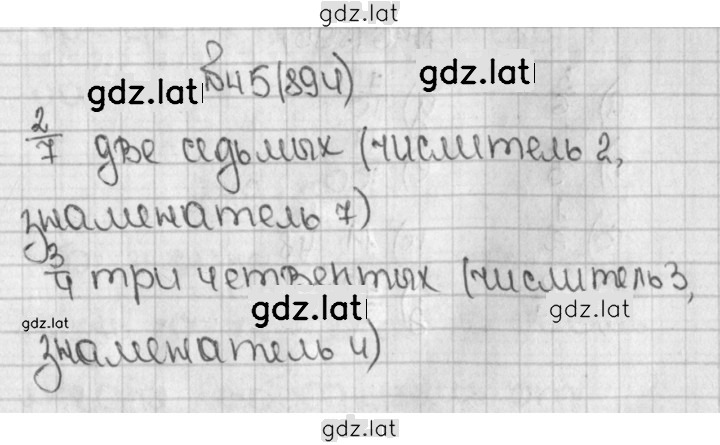 gdz.lat
gdz.lat
gdz.lat
№45(894)
2/7 две седьмых (числитель 2,
знаменатель 7)
3/4 три четвентых (числитель 3,
gdz.lat
gdz.lat
gdz.lat
знаменатель 4)
gdz.lat